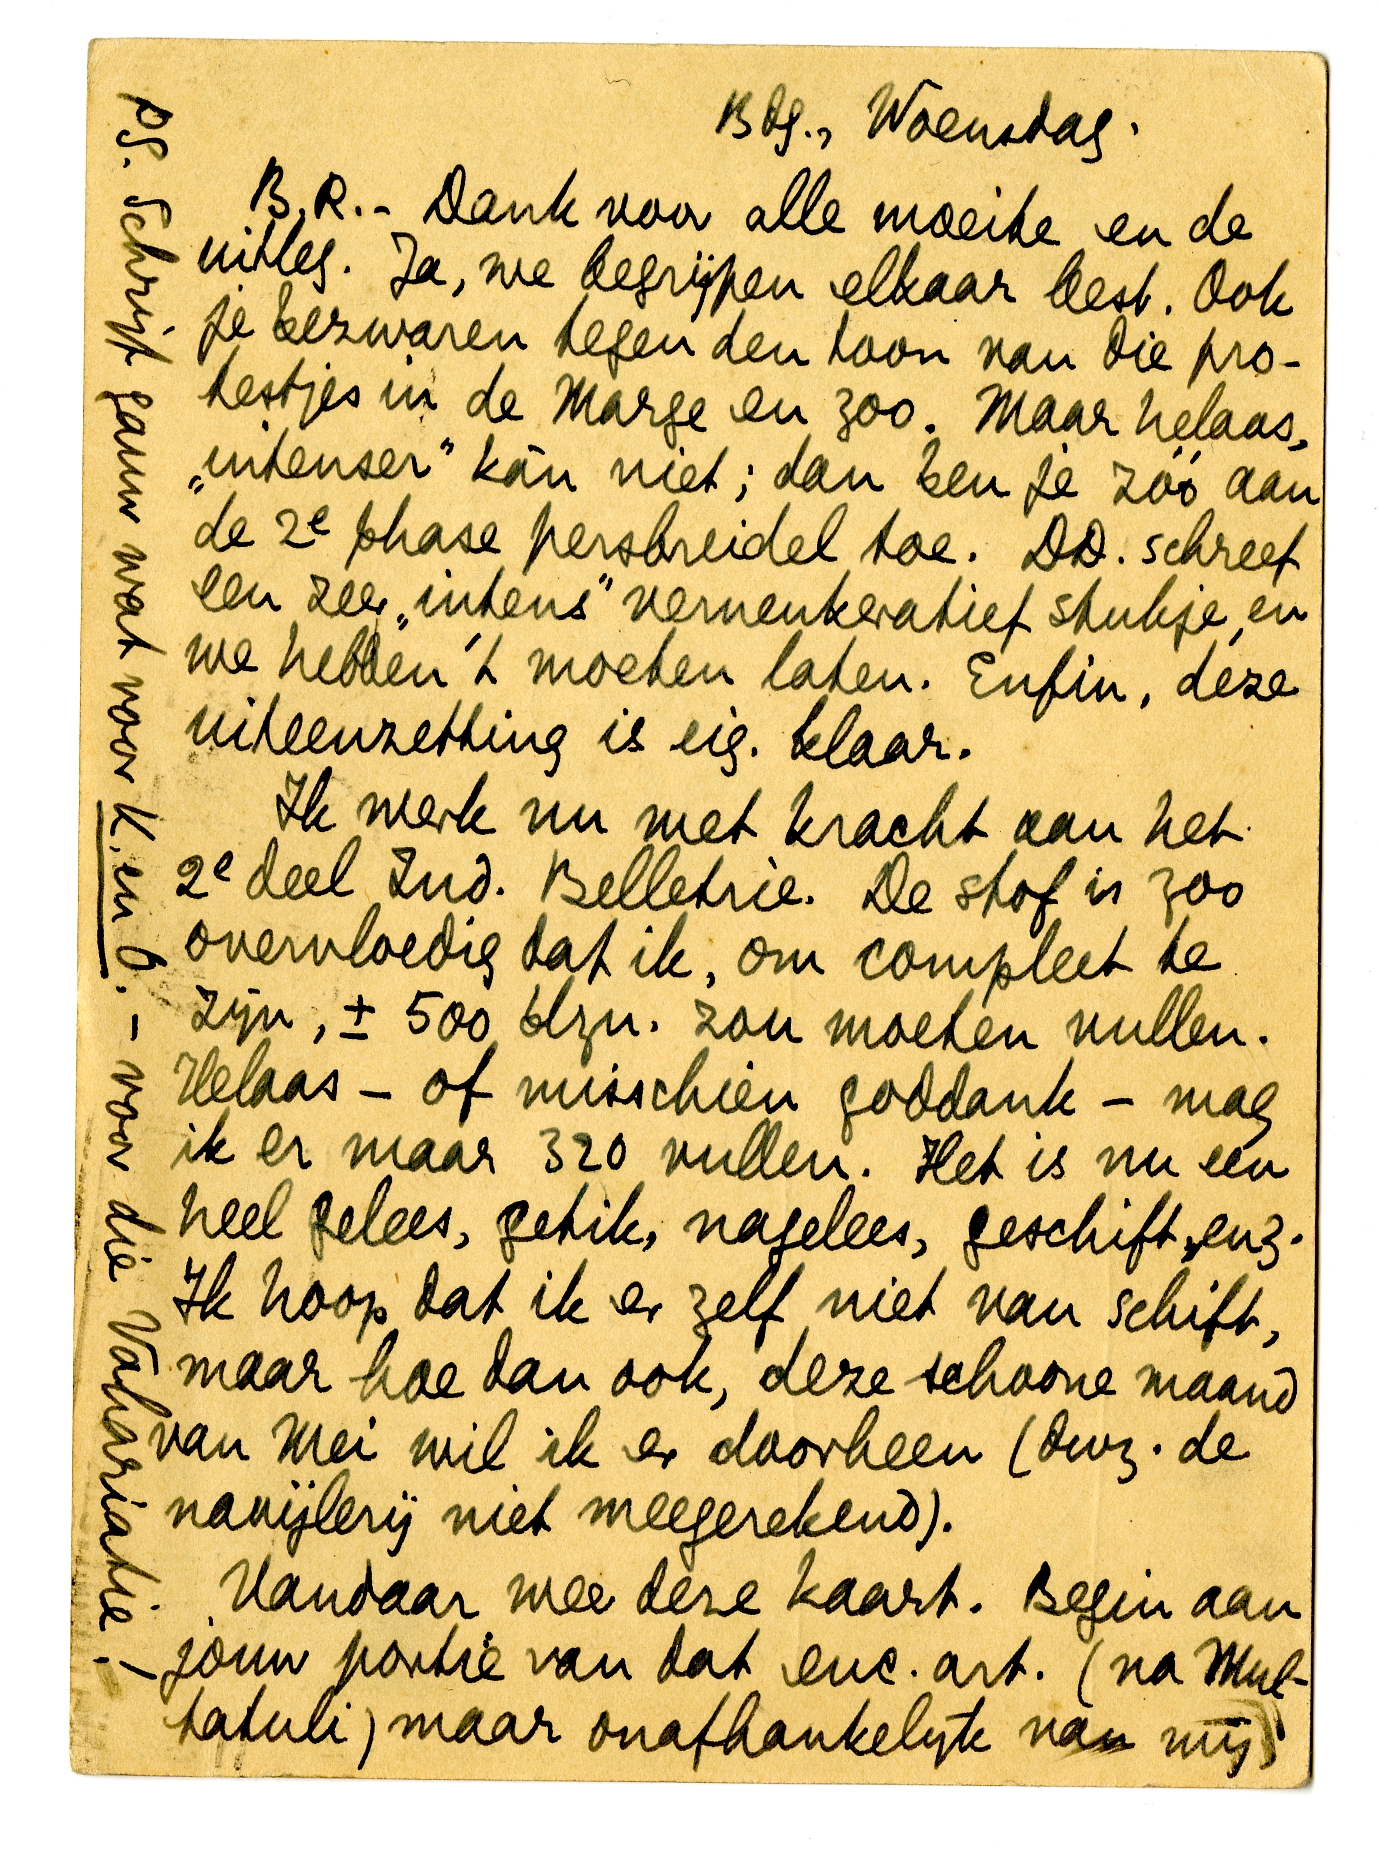 Bdg., Woensdag.
B.R. - Dank voor alle moeite en de
uitleg. Ja, we begrijpen elkaar best. Ook
je bezwaren tegen den toon van die pro-
testjes in de Marge en zoo. Maar helaas,
„intenser” kán niet; dan ben je zóó aan
de 2e phase persbreidel toe. DD. schreef
een zeer „intens” verneukeratief stukje, en
we hebben 't moeten laten. Enfin, deze
uiteenzetting is eig. klaar.
Ik werk nu met kracht aan het
2e deel Ind. Belletrie. De stof is zoo
overvloedig dat ik, om compleet te
zijn, ± 500 blzn. zou moeten vullen.
Helaas - of misschien goddank - mag
ik er maar 320 vullen. Het is nu een
heel gelees, getik, nagelees, geschift, enz.
Ik hoop dat ik er zelf niet van schift,
maar hoe dan ook, deze schoone maand
van Mei wil ik er doorheen (dwz. de
navijlerij niet meegerekend).
Vandaar weer deze kaart. Begin aan
jouw portie van dat enc. art. (na Mul-
tatuli) maar onafhankelijk van mij
PS. Schrijf gauw wat voor K. en O. - voor die Vahariatie! -